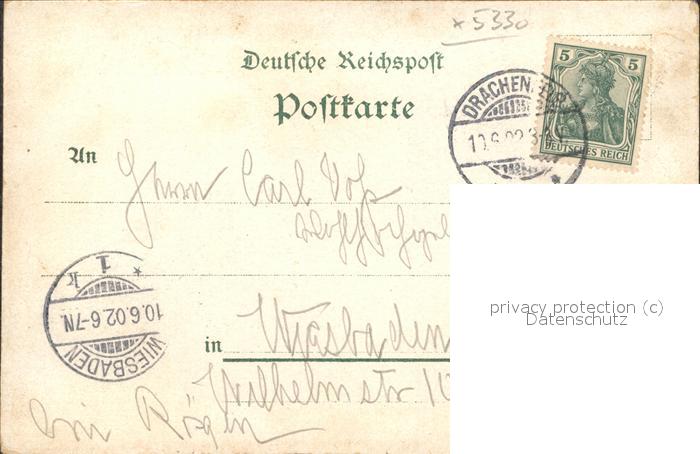 x 5330
Deutsche Reichspost
Postkarte
5 5
DEUTSCHES REICH
DRACHEN
10.6.02 3-
An
Herrn Carl Voss
1
k
10.6.02.6-7N.
WIESBADEN
in Wiesbaden
Wilhelmstr 10
privacy protection (c)
Datenschutz